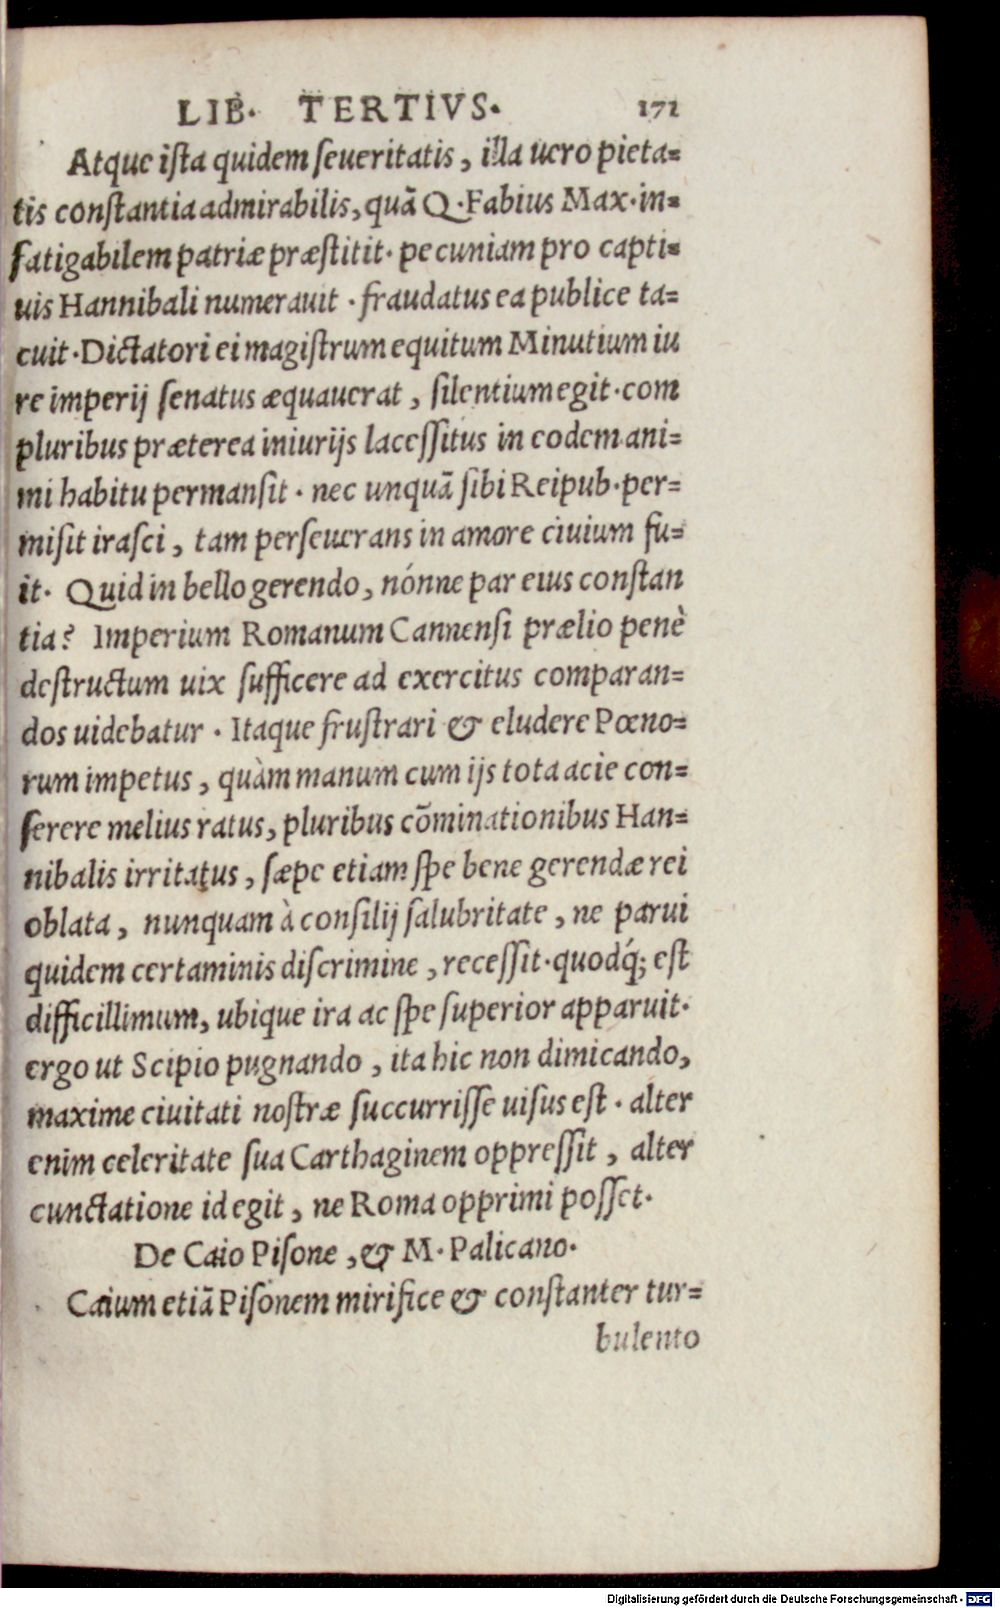 LIB. TERTIVS. 171
Atque ista quidem seueritatis, illa uero pieta=
tis constantia admirabilis, quã Q. Fabius Max. in=
fatigabilem patriæ præstitit. pecuniam pro capti=
uis Hannibali numerauit. fraudatus ea publice ta=
cuit. Dictatori ei magistrum equitum Minutium iu
re imperij senatus æquauerat, silentium egit. com
pluribus præterea iniurijs lacessitus in eodem ani=
mi habitu permansit. nec unquã sibi Reipub. per=
misit irasci, tam perseuerans in amore ciuium fu=
it. Quid in bello gerendo, nónne par eius constan
tia? Imperium Romanum Cannensi prælio penè
destructum uix sufficere ad exercitus comparan=
dos uidebatur. Itaque frustrari & eludere Pœno=
rum impetus, quàm manum cum ijs tota acie con=
serere melius ratus, pluribus cõminationibus Han=
nibalis irritatus, sæpe etiam spe bene gerendæ rei
oblata, nunquam à consilij salubritate, ne parui
quidem certaminis discrimine, recessit. quodq́; est
difficillimum, ubique ira ac spe superior apparuit.
ergo ut Scipio pugnando, ita hic non dimicando,
maxime ciuitati nostræ succurrisse uisus est. alter
enim celeritate sua Carthaginem oppressit, alter
cunctatione id egit, ne Roma opprimi posset.
De Caio Pisone, & M. Palicano.
Caium etiã Pisonem mirifice & constanter tur=
bulento
Digitalisierung gefördert durch die Deutsche Forschungsgemeinschaft - DFG